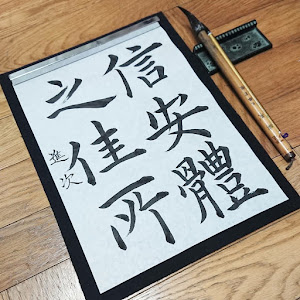 信安體
之佳所
進次